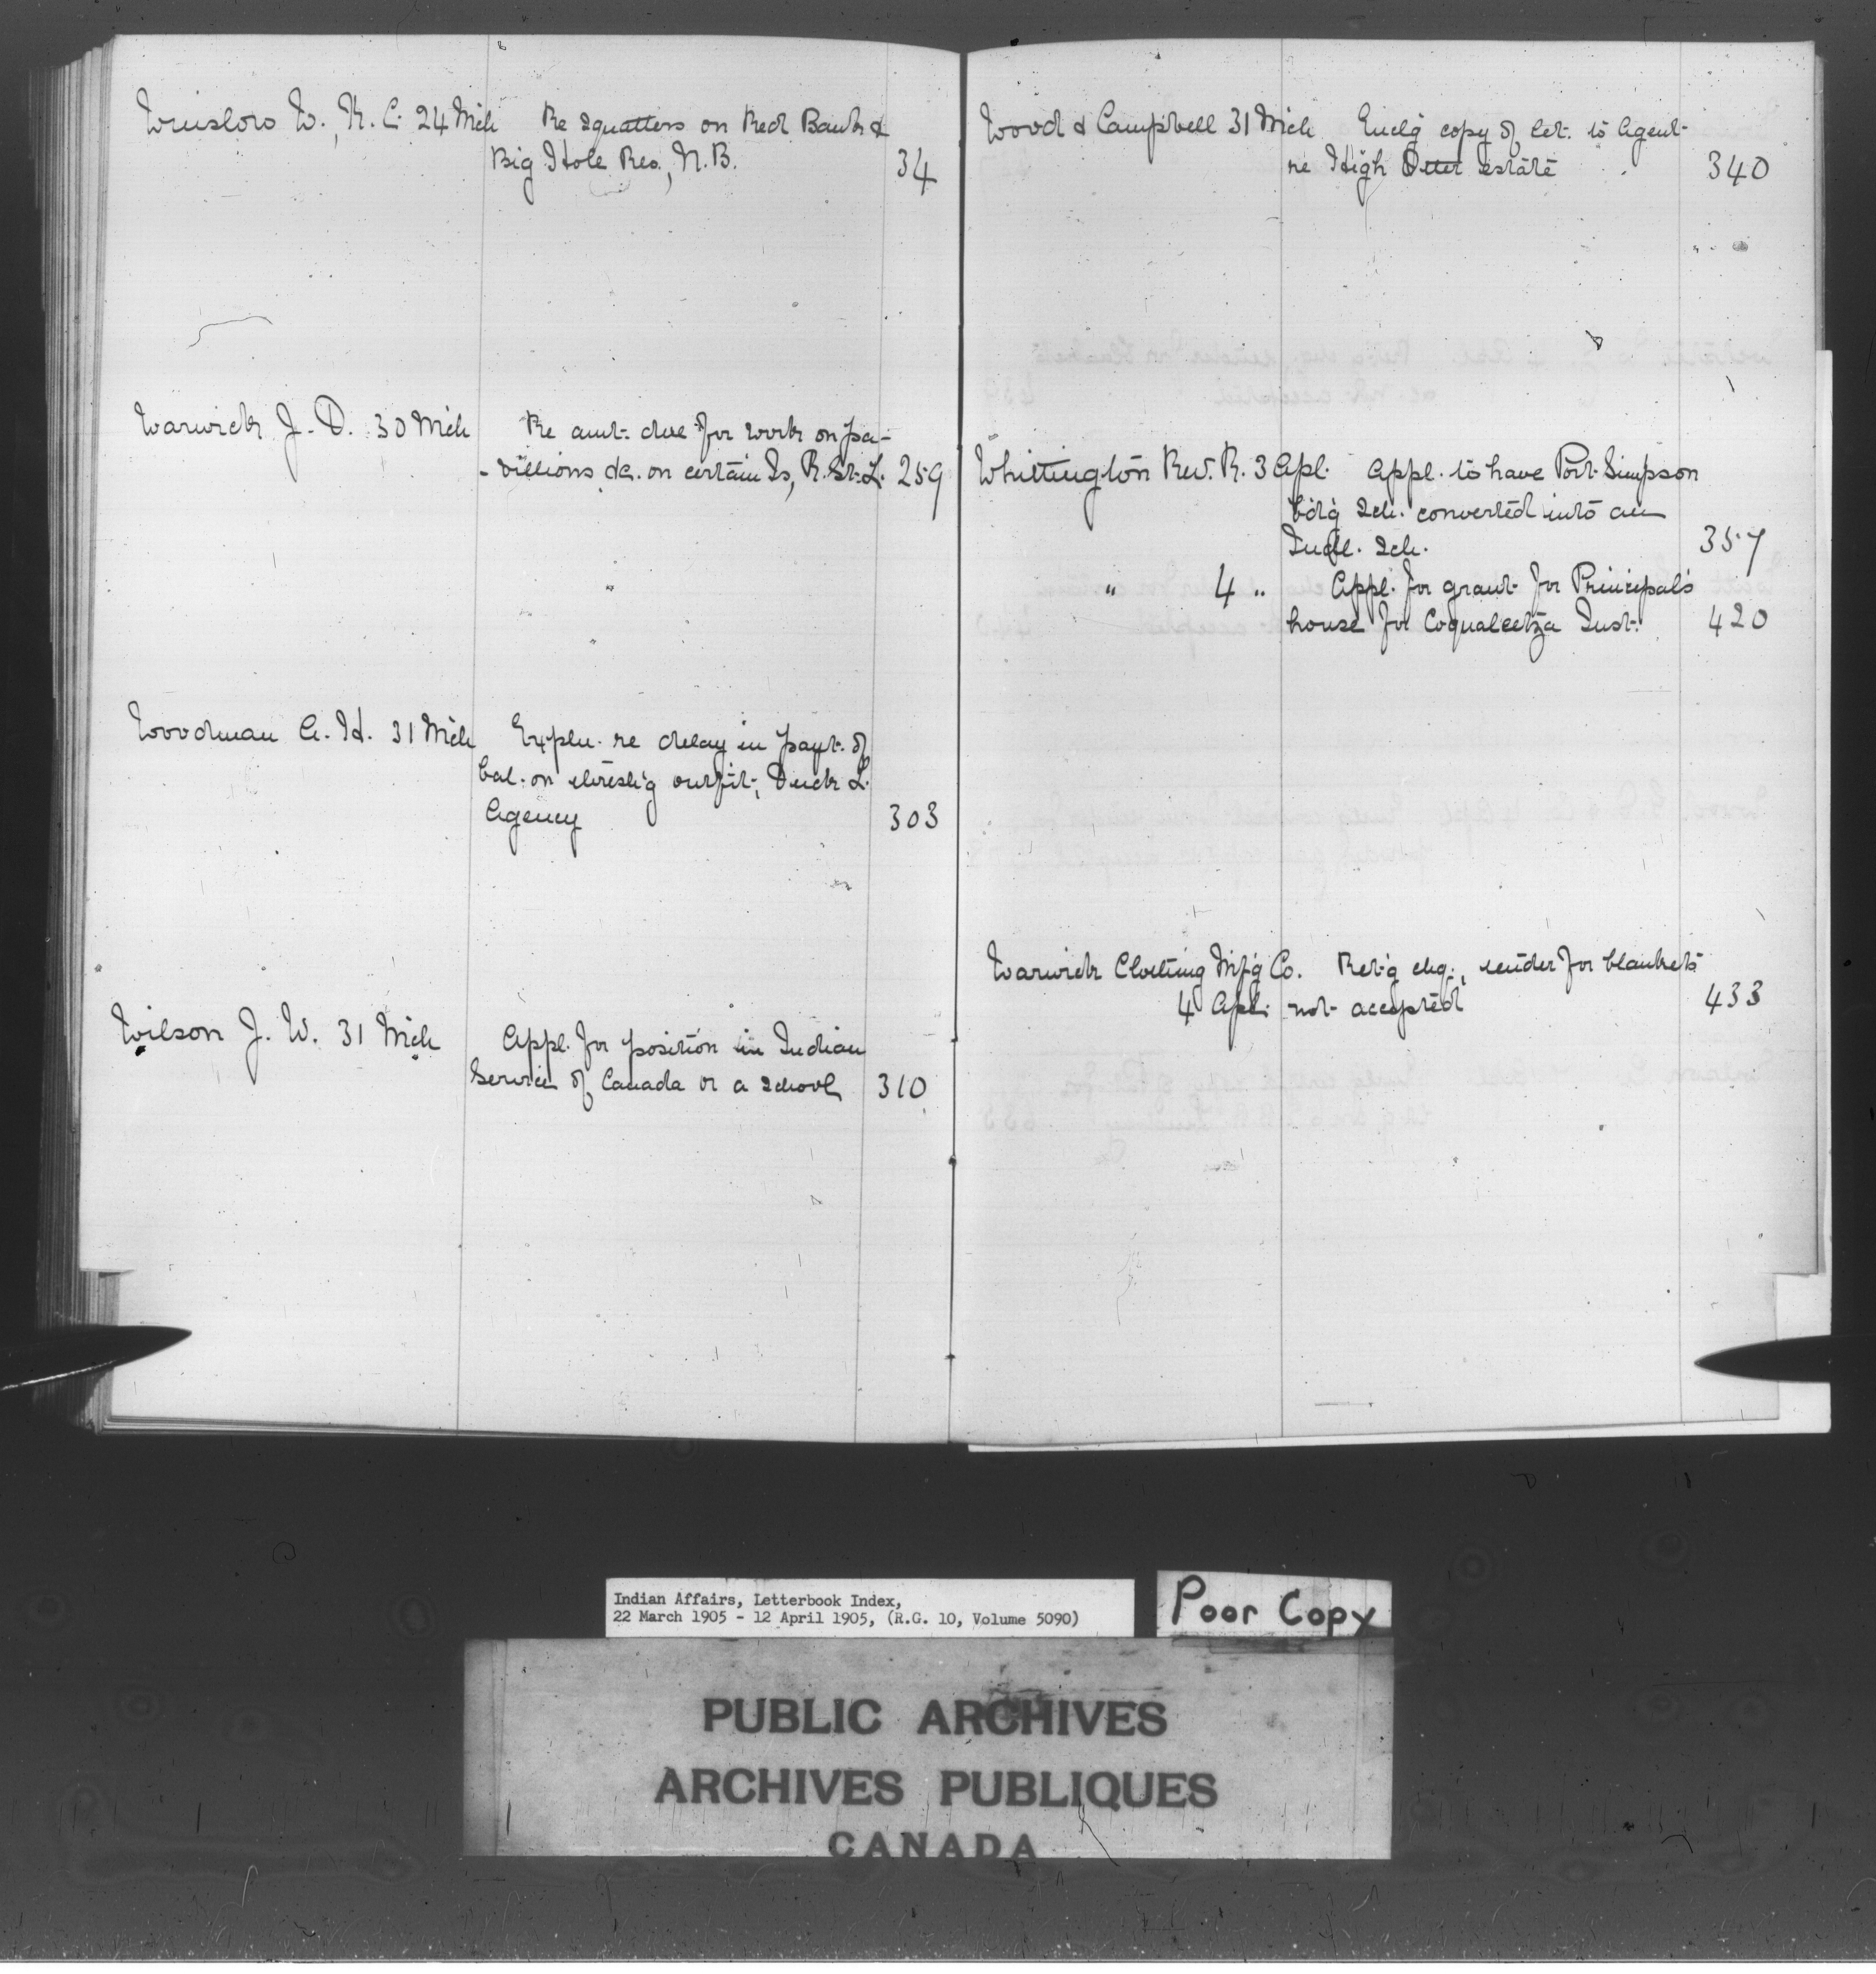 Winslow W., K.C. 24 Mch Re squatters on Red Bank &
Big Hole Res., N.B. 34
Warwick J. D. 30 Mch Re amt. due for work on pa-
-villions &c. on certain Is, R. St. L. 259
Woodman A. H. 31 Mch Expln. re delay in payt. of
bal. on thresh'g outfit, Duck L.
Agency 303
Wilson J. W. 31 Mch Appl. for position in Indian
Service of Canada or a School 310
Wood & Campbell 31 Mch Encl'g copy of let. to Agent
re High Otter estate 340
Whittington Rev. R. 3 Apl. Appl. to have Port Simpson
b'd'g Sch. converted into an
Indl. Sch. 357
" 4 " Appl. for grant for Principal's
house for Coqualeetza Inst. 420
Warwick Clothing Mf'g Co. Ret'g chq., tender for blankets
4 Apl. not accepted 433
Indian Affairs, Letterbook Index,
22 March 1905 - 12 April 1905, (R.G. 10, Volume 5090)
Poor Copy
PUBLIC ARCHIVES
ARCHIVES PUBLIQUES
CANADA